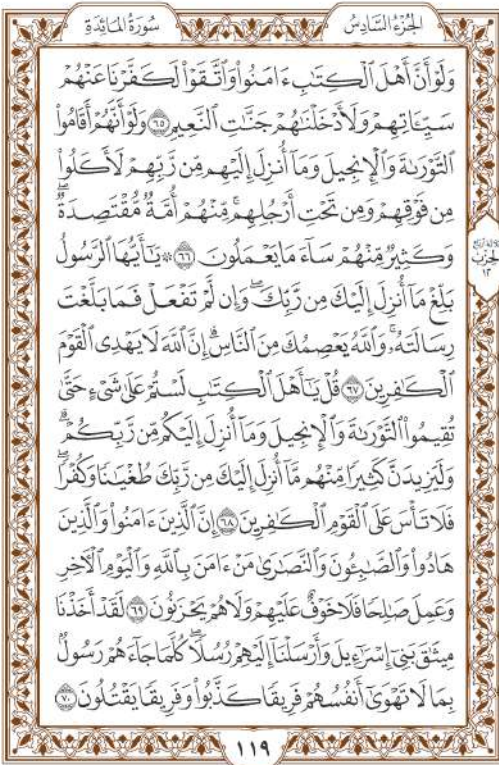 سُورَةُ المَائِدَةِ
الجُزْءُ السَّادِسُ
وَلَوْ أَنَّ أَهْلَ ٱلْكِتَٰبِ ءَامَنُوا۟ وَٱتَّقَوْا۟ لَكَفَّرْنَا عَنْهُمْ
سَيِّـَٔاتِهِمْ وَلَأَدْخَلْنَٰهُمْ جَنَّٰتِ ٱلنَّعِيمِ ٦٥ وَلَوْ أَنَّهُمْ أَقَامُوا۟
ٱلتَّوْرَىٰةَ وَٱلْإِنجِيلَ وَمَآ أُنزِلَ إِلَيْهِم مِّن رَّبِّهِمْ لَأَكَلُوا۟
مِن فَوْقِهِمْ وَمِن تَحْتِ أَرْجُلِهِم ۚ مِّنْهُمْ أُمَّةٌ مُّقْتَصِدَةٌ ۖ
وَكَثِيرٌ مِّنْهُمْ سَآءَ مَا يَعْمَلُونَ ٦٦ ۞ يَٰٓأَيُّهَا ٱلرَّسُولُ
بَلِّغْ مَآ أُنزِلَ إِلَيْكَ مِن رَّبِّكَ ۖ وَإِن لَّمْ تَفْعَلْ فَمَا بَلَّغْتَ
رِسَالَتَهُۥ ۚ وَٱللَّهُ يَعْصِمُكَ مِنَ ٱلنَّاسِ ۗ إِنَّ ٱللَّهَ لَا يَهْدِى ٱلْقَوْمَ
ٱلْكَٰفِرِينَ ٦٧ قُلْ يَٰٓأَهْلَ ٱلْكِتَٰبِ لَسْتُمْ عَلَىٰ شَىْءٍ حَتَّىٰ
تُقِيمُوا۟ ٱلتَّوْرَىٰةَ وَٱلْإِنجِيلَ وَمَآ أُنزِلَ إِلَيْكُم مِّن رَّبِّكُمْ ۗ
وَلَيَزِيدَنَّ كَثِيرًا مِّنْهُم مَّآ أُنزِلَ إِلَيْكَ مِن رَّبِّكَ طُغْيَٰنًا وَكُفْرًا ۖ
فَلَا تَأْسَ عَلَى ٱلْقَوْمِ ٱلْكَٰفِرِينَ ٦٨ إِنَّ ٱلَّذِينَ ءَامَنُوا۟ وَٱلَّذِينَ
هَادُوا۟ وَٱلصَّٰبِـُٔونَ وَٱلنَّصَٰرَىٰ مَنْ ءَامَنَ بِٱللَّهِ وَٱلْيَوْمِ ٱلْـَٔاخِرِ
وَعَمِلَ صَٰلِحًا فَلَا خَوْفٌ عَلَيْهِمْ وَلَا هُمْ يَحْزَنُونَ ٦٩ لَقَدْ أَخَذْنَا
مِيثَٰقَ بَنِىٓ إِسْرَٰٓءِيلَ وَأَرْسَلْنَآ إِلَيْهِمْ رُسُلًا ۖ كُلَّمَا جَآءَهُمْ رَسُولٌۢ
بِمَا لَا تَهْوَىٰٓ أَنفُسُهُمْ فَرِيقًا كَذَّبُوا۟ وَفَرِيقًا يَقْتُلُونَ ٧٠
الحِزْب
١٣
١١٩